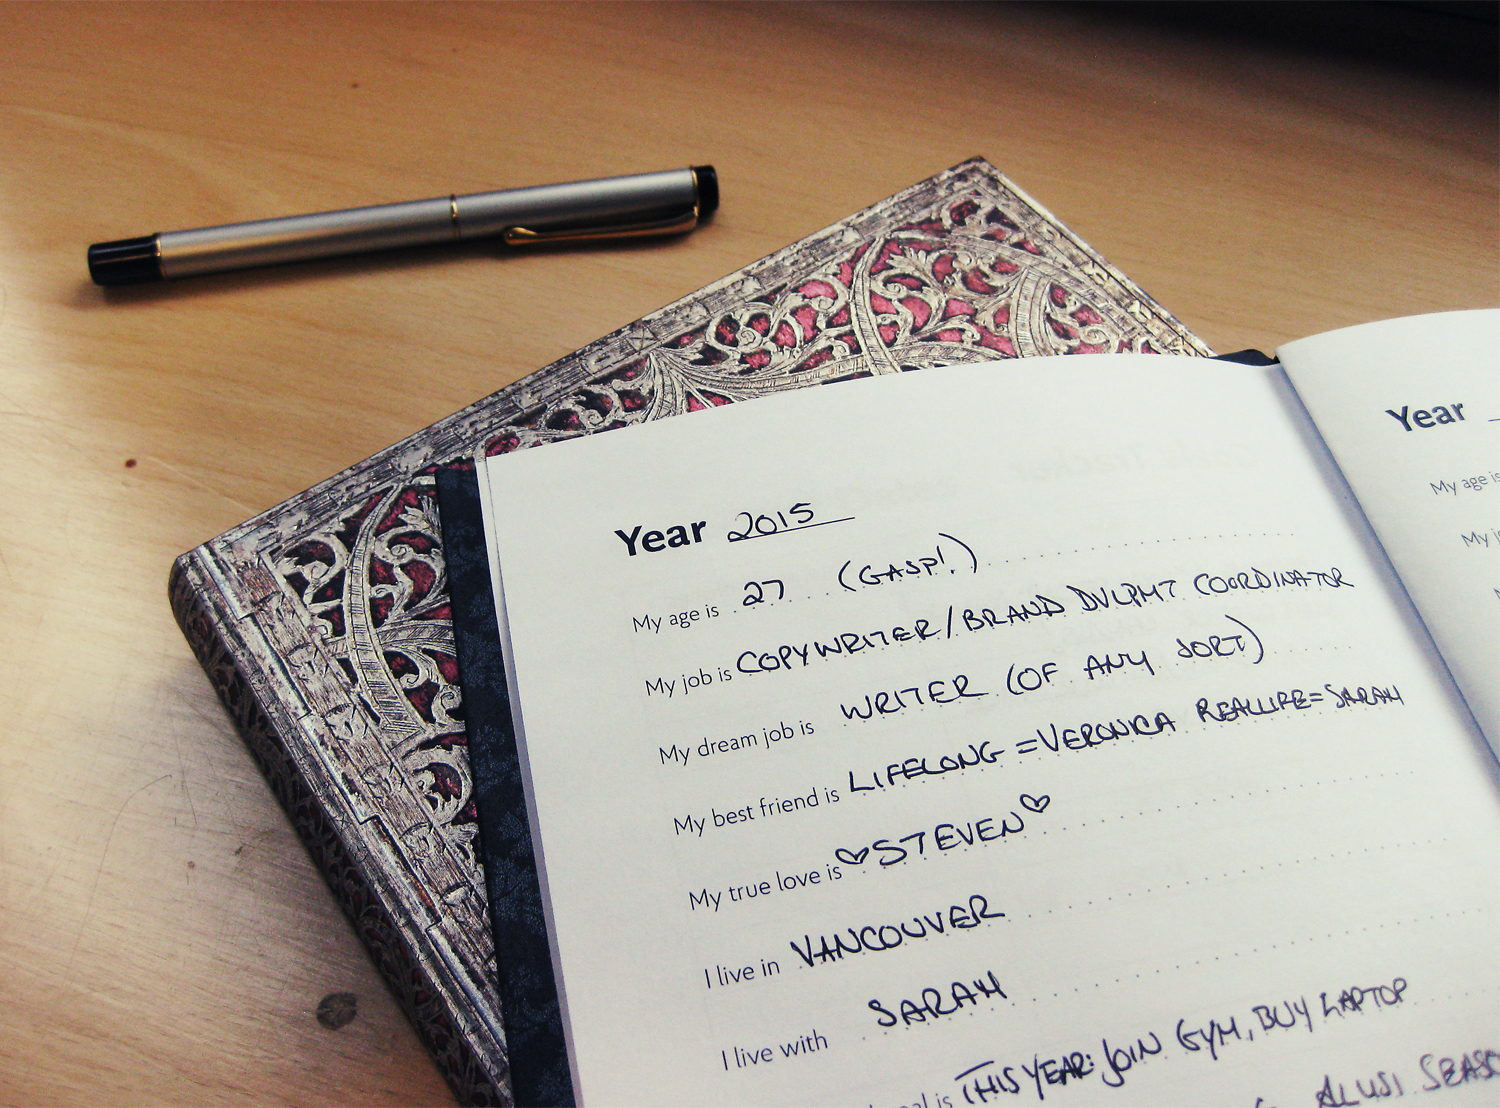 Year 2015
My age is 27 (GASP!)
My job is COPYWRITER/BRAND DVLPMT COORDINATOR
My dream job is WRITER (OF ANY SORT)
My best friend is LIFELONG = VERONICA REALLIFE = SARAH
My true love is ♡STEVEN♡
I live in VANCOUVER
I live with SARAH
is THIS YEAR: JOIN GYM, BUY LAPTOP
Year
My age is